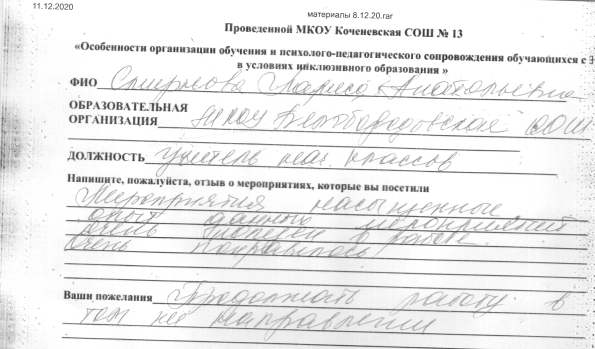 11.12.2020
материалы 8.12.20.rar
Проведенной МКОУ Коченевская СОШ № 13
«Особенности организации обучения и психолого-педагогического сопровождения обучающихся с
в условиях инклюзивного образования »
ФИО Смирнова Лариса Анатольевна
ОБРАЗОВАТЕЛЬНАЯ
ОРГАНИЗАЦИЯ МКОУ Белобородовская ООШ
ДОЛЖНОСТЬ Учитель нач. классов
Напишите, пожалуйста, отзыв о мероприятиях, которые вы посетили
Мероприятия насыщенные
опыт данных мероприятий
очень полезен в работе.
Очень понравилось
Ваши пожелания Продолжать работу в
том же направлении